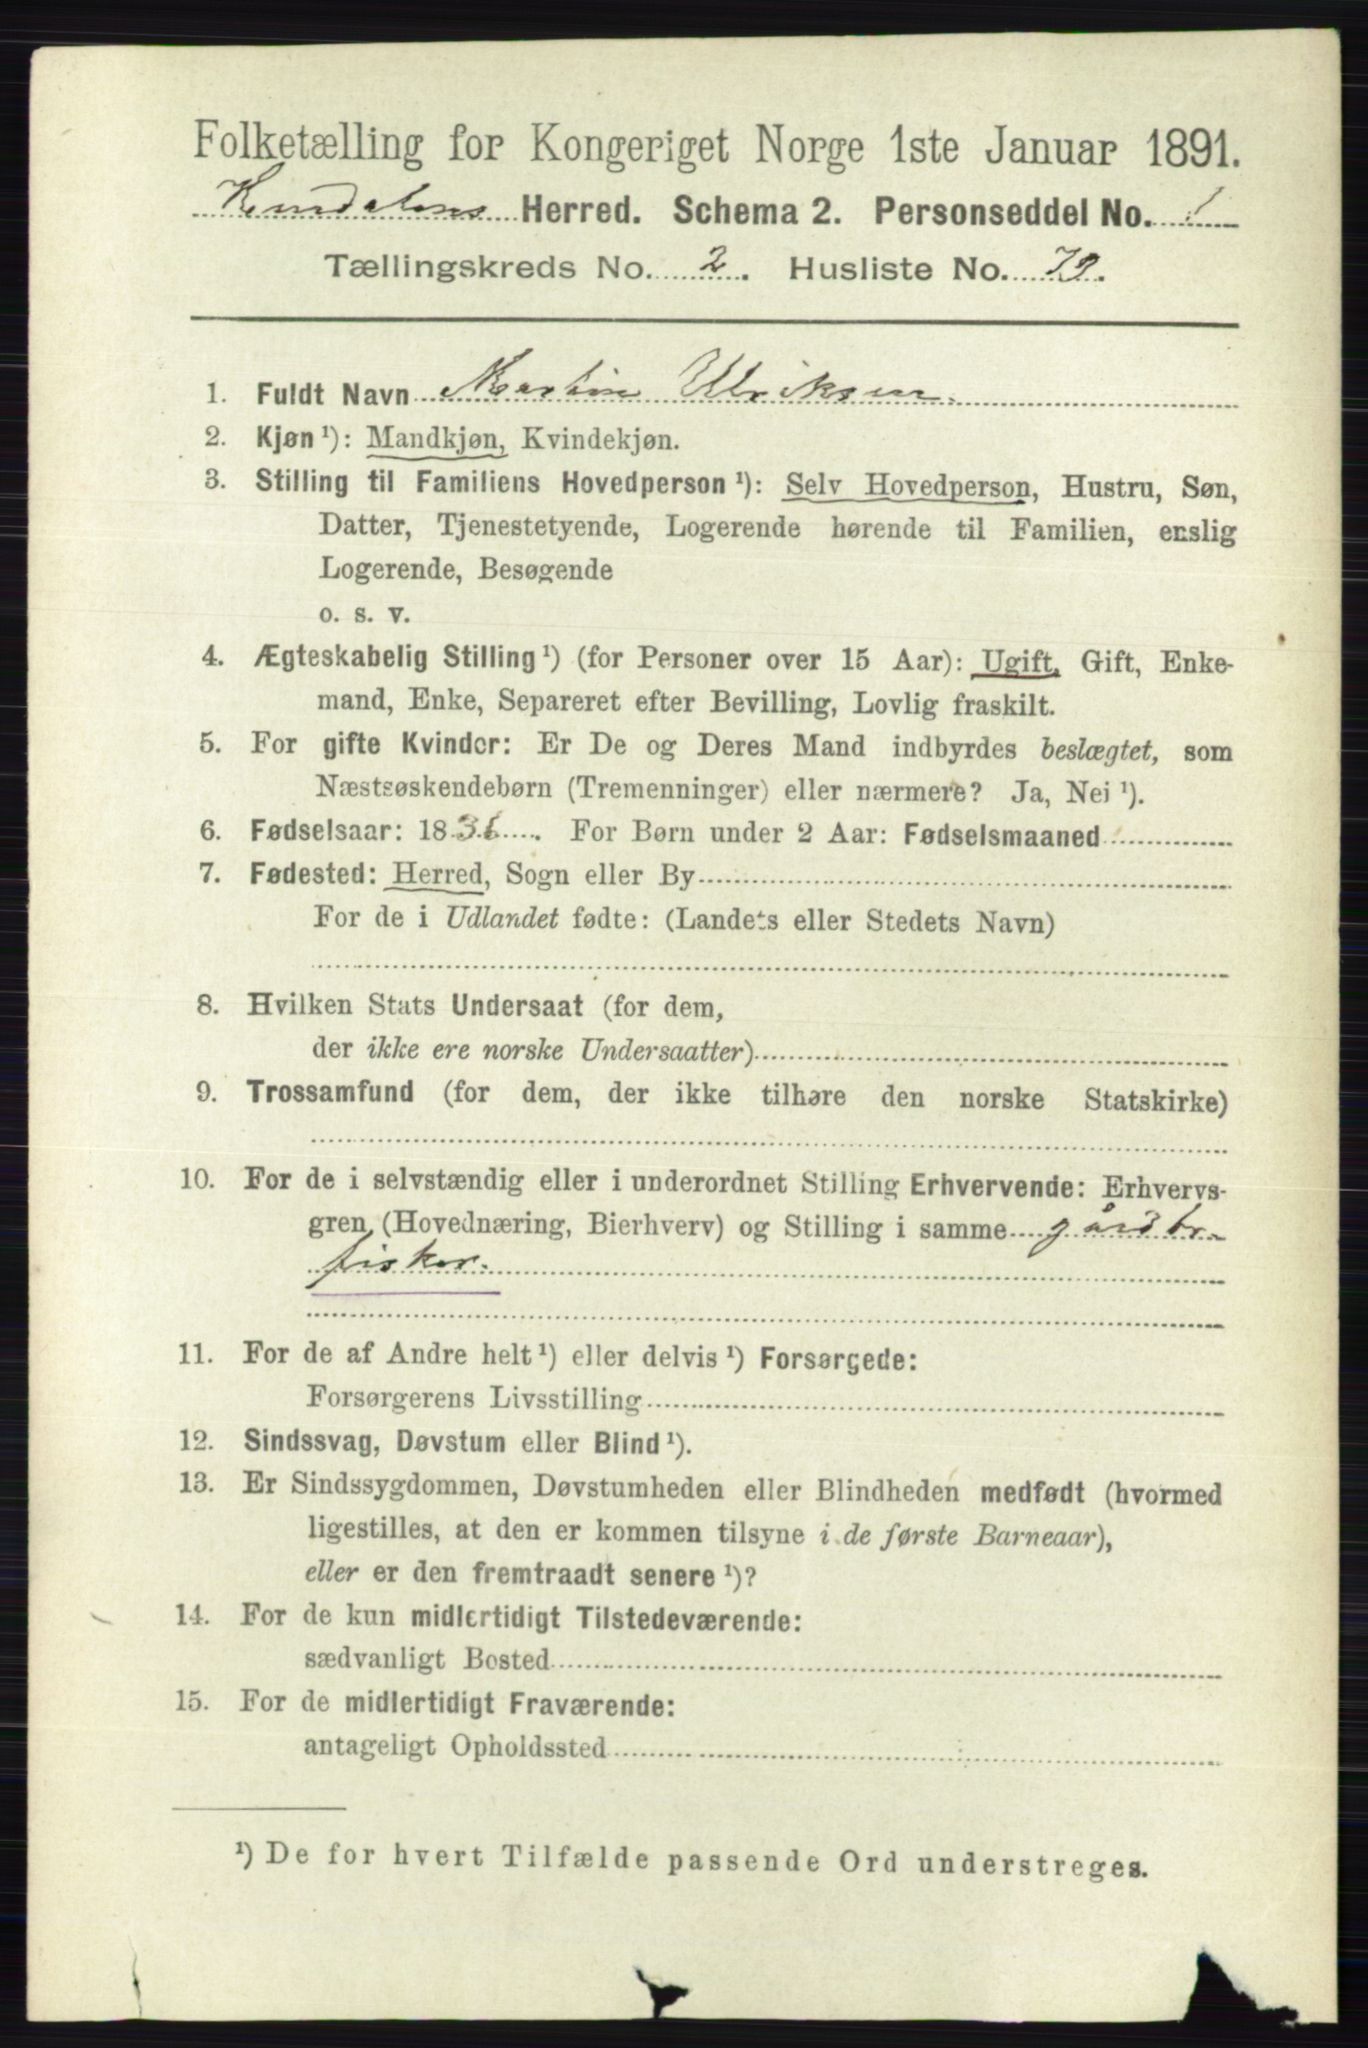 Folketælling for Kongeriget Norge 1ste Januar 1891.
Herred. Schema 2. Personseddel No. 1
Tællingskreds No. 2. Husliste No. 79.
1. Fuldt Navn Martin Ulriksen.
2. Kjøn ¹): Mandkjøn, Kvindekjøn.
3. Stilling til Familiens Hovedperson ¹): Selv Hovedperson, Hustru, Søn,
Datter, Tjenestetyende, Logerende hørende til Familien, enslig
Logerende, Besøgende
o. s. v.
4. Ægteskabelig Stilling ¹) (for Personer over 15 Aar): Ugift, Gift, Enke-
mand, Enke, Separeret efter Bevilling, Lovlig fraskilt.
5. For gifte Kvinder: Er De og Deres Mand indbyrdes beslægtet, som
Næstsøskendebørn (Tremenninger) eller nærmere? Ja, Nei ¹).
6. Fødselsaar: 1836. For Børn under 2 Aar: Fødselsmaaned
7. Fødested: Herred, Sogn eller By
For de i Udlandet fødte: (Landets eller Stedets Navn)
8. Hvilken Stats Undersaat (for dem,
der ikke ere norske Undersaatter)
9. Trossamfund (for dem, der ikke tilhøre den norske Statskirke)
10. For de i selvstændig eller i underordnet Stilling Erhvervende: Erhvervs-
gren (Hovednæring, Bierhverv) og Stilling i samme gårdbr.
fisker.
11. For de af Andre helt ¹) eller delvis ¹) Forsørgede:
Forsørgerens Livsstilling
12. Sindssvag, Døvstum eller Blind ¹).
13. Er Sindssygdommen, Døvstumheden eller Blindheden medfødt (hvormed
ligestilles, at den er kommen tilsyne i de første Barneaar),
eller er den fremtraadt senere ¹)?
14. For de kun midlertidigt Tilstedeværende:
sædvanligt Bosted
15. For de midlertidigt Fraværende:
antageligt Opholdssted
¹) De for hvert Tilfælde passende Ord understreges.